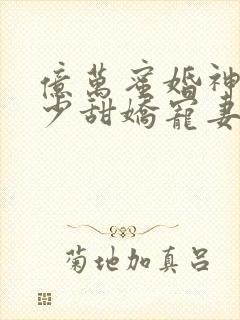 億萬蜜婚神
少甜嬌寵妻
菊地加真呂